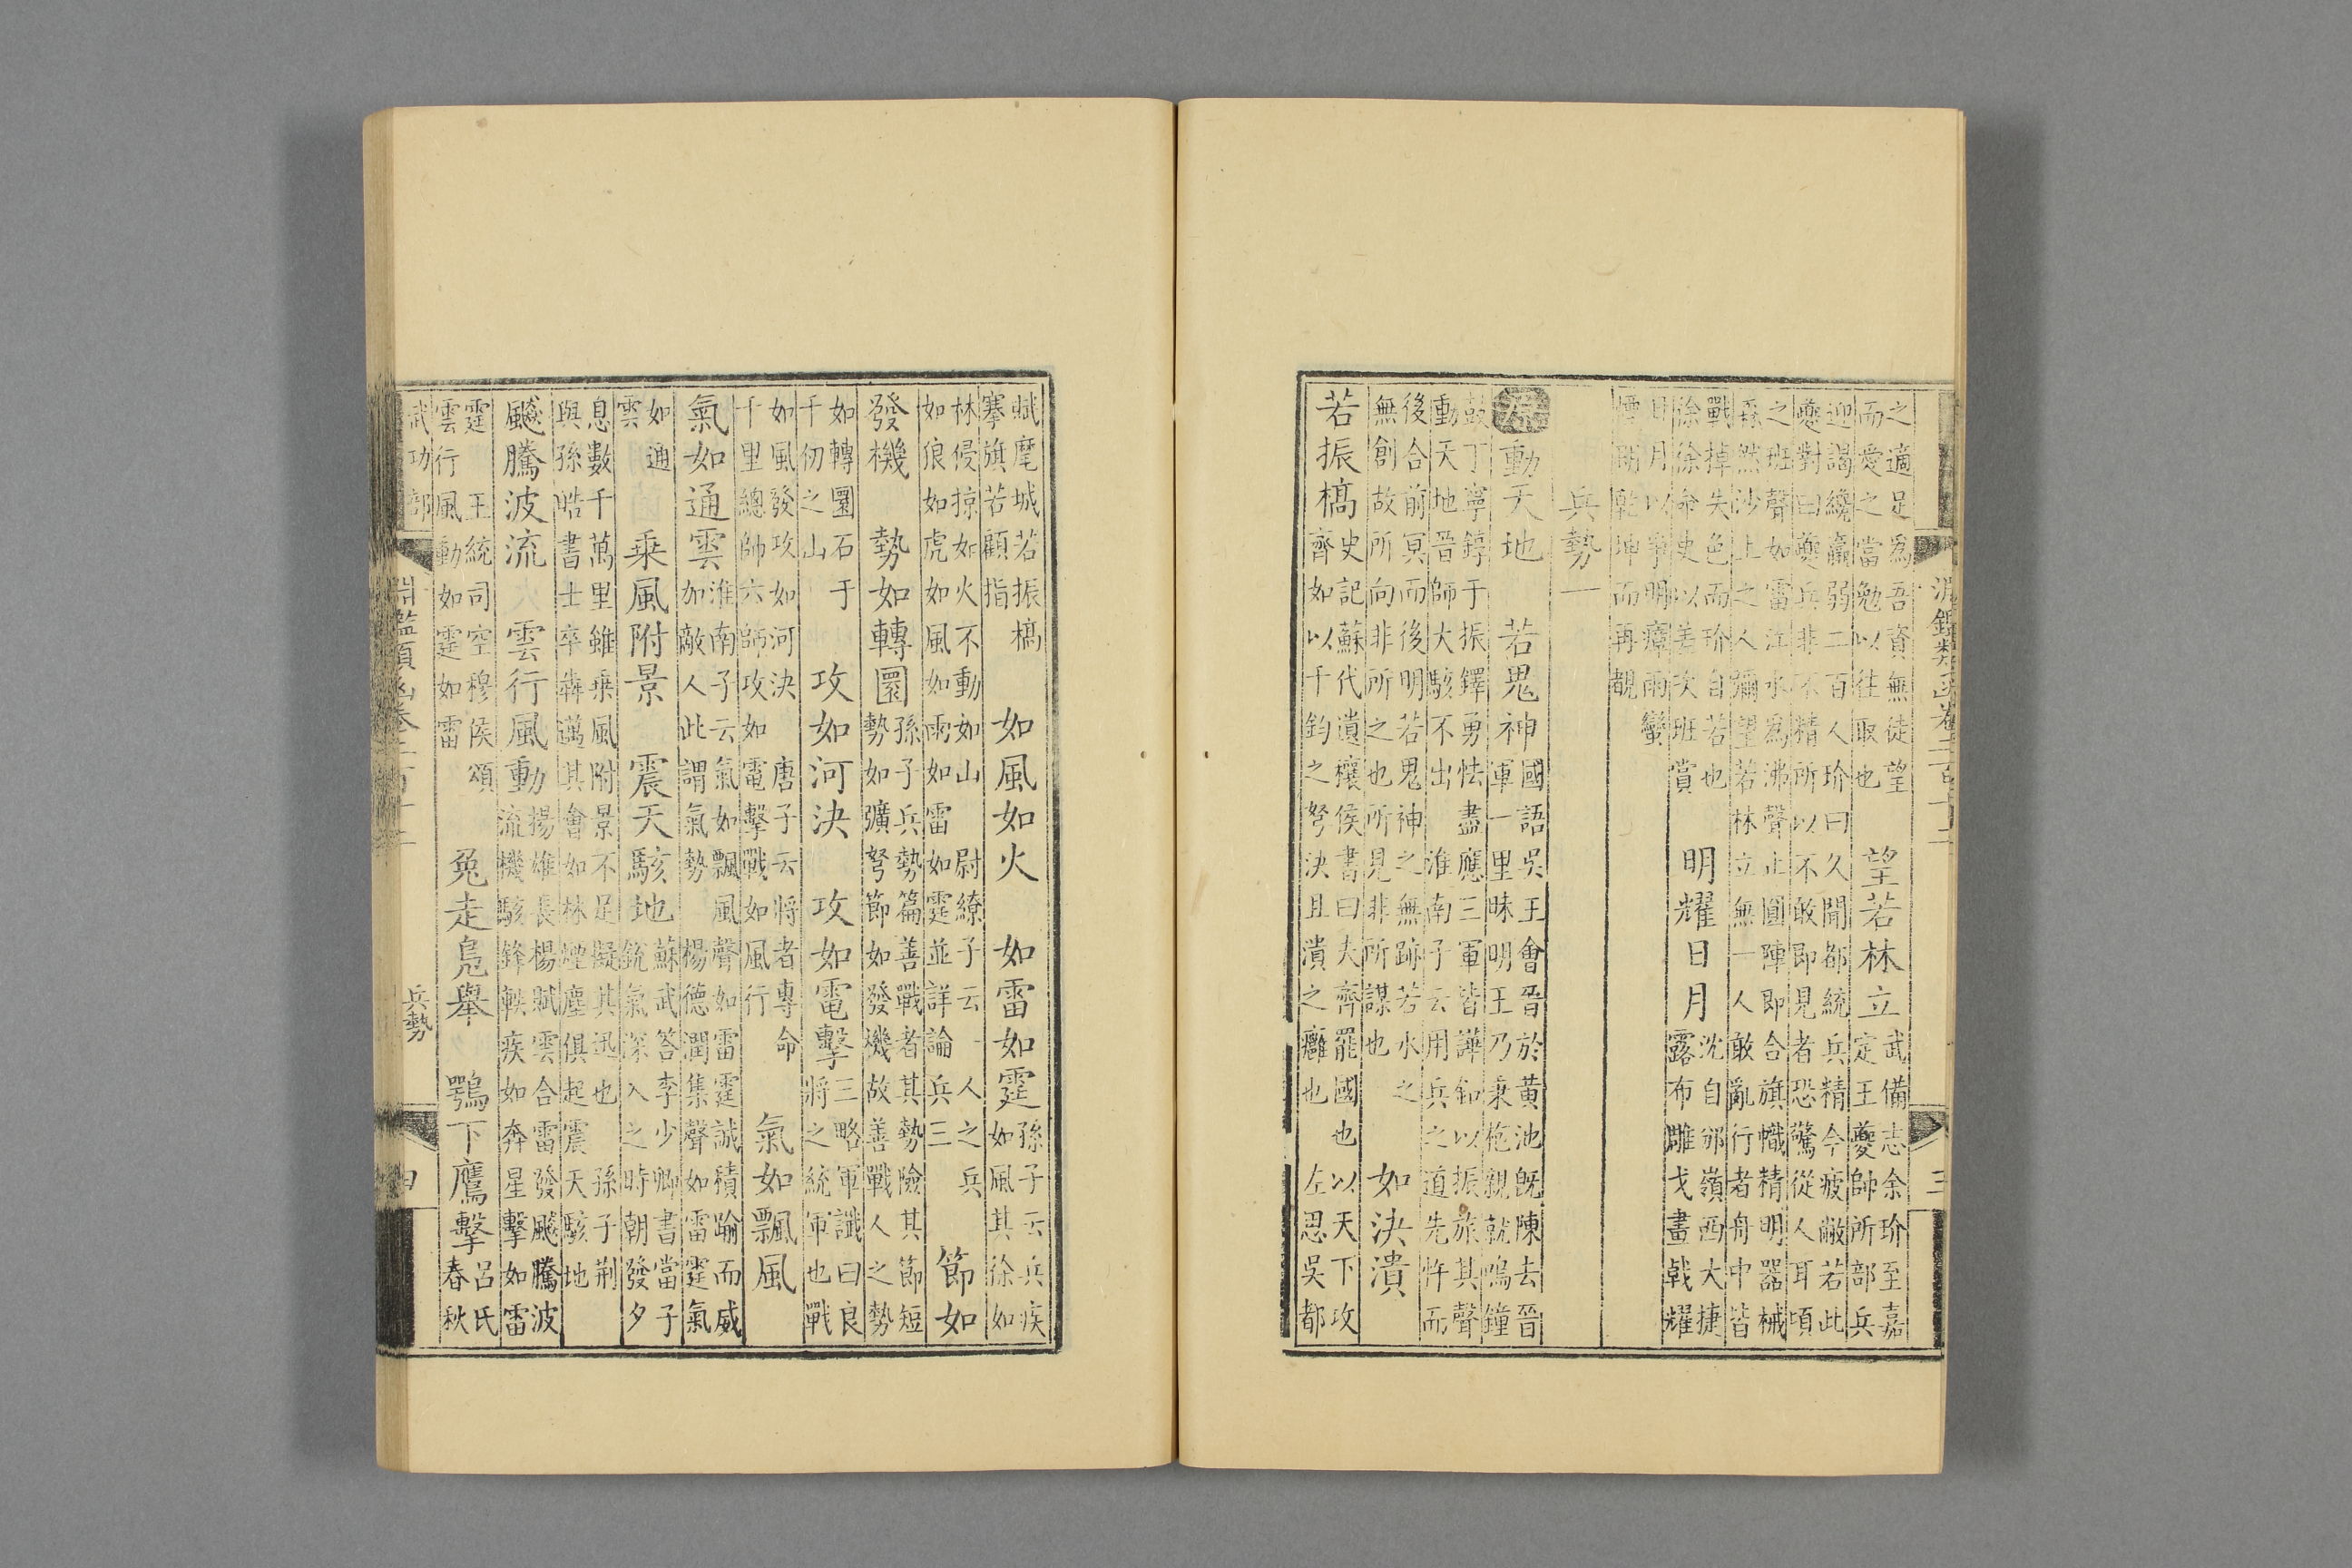 淵鑑類函卷二百十二 三
之適足為吾資無徒望
而愛之當勉以往取也
望若林立
武備志余玠至嘉
定王夔帥所部兵
迎謁纔羸弱二百人玠曰久聞都統兵精今疲敝若此
夔對曰夔兵非不精所以不敢即見者恐驚從人耳頃
之班聲如雷江水為沸聲止圓陣即合旗幟精明器械
森然沙上之人彌望若林立無一人敢亂行者舟中皆
戰掉失色而玠自若也
徐徐命吏以差次班賞
明耀日月
沈自邠嶺西大捷
露布雕戈畫戟耀
日月以爭明瘴雨蠻
煙開乾坤而再覩
兵勢一
原 動天地 若鬼神
國語吳王會晉於黃池既陳去晉
軍一里昧明王乃秉枹親就鳴鐘
鼓丁寧錞于振鐸勇怯盡應三軍皆譁釦以振旅其聲
動天地晉師大駭不出 淮南子云用兵之道先忤而
後合前冥而後明若鬼神之無跡若水之
無創故所向非所之也所見非所謀也
如決潰
若振槁
史記蘇代遺穰侯書曰夫齊罷國也以天下攻
齊如以千鈞之弩決且潰之癰也 左思吳都
賦麾城若振槁
搴旗若顧指
如風如火 如雷如霆
孫子云兵疾
如風其徐如
林侵掠如火不動如山 尉繚子云 人之兵
如狼如虎如風如雨如雷如霆並詳論兵三
節如
發機 勢如轉圜
孫子兵勢篇善戰者其勢險其節短
勢如彍弩節如發機故善戰人之勢
如轉圜石于
千仞之山
攻如河決 攻如電擊
三略軍讖曰良
將之統軍也戰
如風發攻如河決 唐子云將者專命
千里總帥六師攻如電擊戰如風行
氣如飄風
氣如通雲
淮南子云氣如飄風聲如雷霆誠積踰而威
加敵人此謂氣勢 楊德潤集聲如雷霆氣
如通
雲
乘風附景 震天駭地
蘇武答李少卿書當子
銳氣深入之時朝發夕
息數千萬里雖乘風附景不足擬其迅也 孫子荊
與孫皓書士卒犇邁其會如林煙塵俱起震天駭地
飈騰波流 雲行風動
揚雄長楊賦雲合雷發飈騰波
流機駭鋒軼疾如奔星擊如雷
霆 王統司空穆侯頌
雲行風動如霆如雷
兔走鳧舉 鶚下鷹擊
呂氏
春秋
武功部 淵鑑類函卷二百十二 兵勢 四